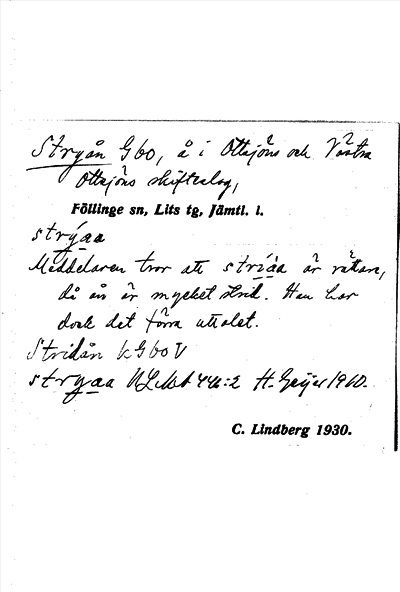 Stryån G60, å i Ottsjöns och Västra
Ottsjöns skifteslag,
Föllinge sn, Lits tg, Jämtl. l.
strýaa
Meddelaren tror att stríaa är rättare,
då ån är mycket strid. Han har
dock det förra uttalet.
Stridån kG60V
stryaa 446:2 H. Geijer 1960.
C. Lindberg 1930.